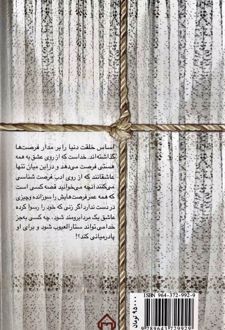 اساس خلقت دنیا را بر مدار فرصت‌ها
گذاشته‌اند. خداست که از روی عشق به همه
هستی فرصت می‌دهد و دراین میان تنها
عاشقانند که از روی ادب فرصت شناسی
می‌کنند آنچه می‌خوانید قصه کسی است
که همه عمرفرصت‌هایش را سوزانده وچیزی
در دست ندارد اگر زنی که خود را رسوا کرده
عاشق یک مردآبرومند شود، چه کسی به‌جز
خدا می‌تواند ستارالعیوب شود و برای او
پادرمیانی کند؟!
ISBN: 964-372-992-9
۹۵۰۰ تومان